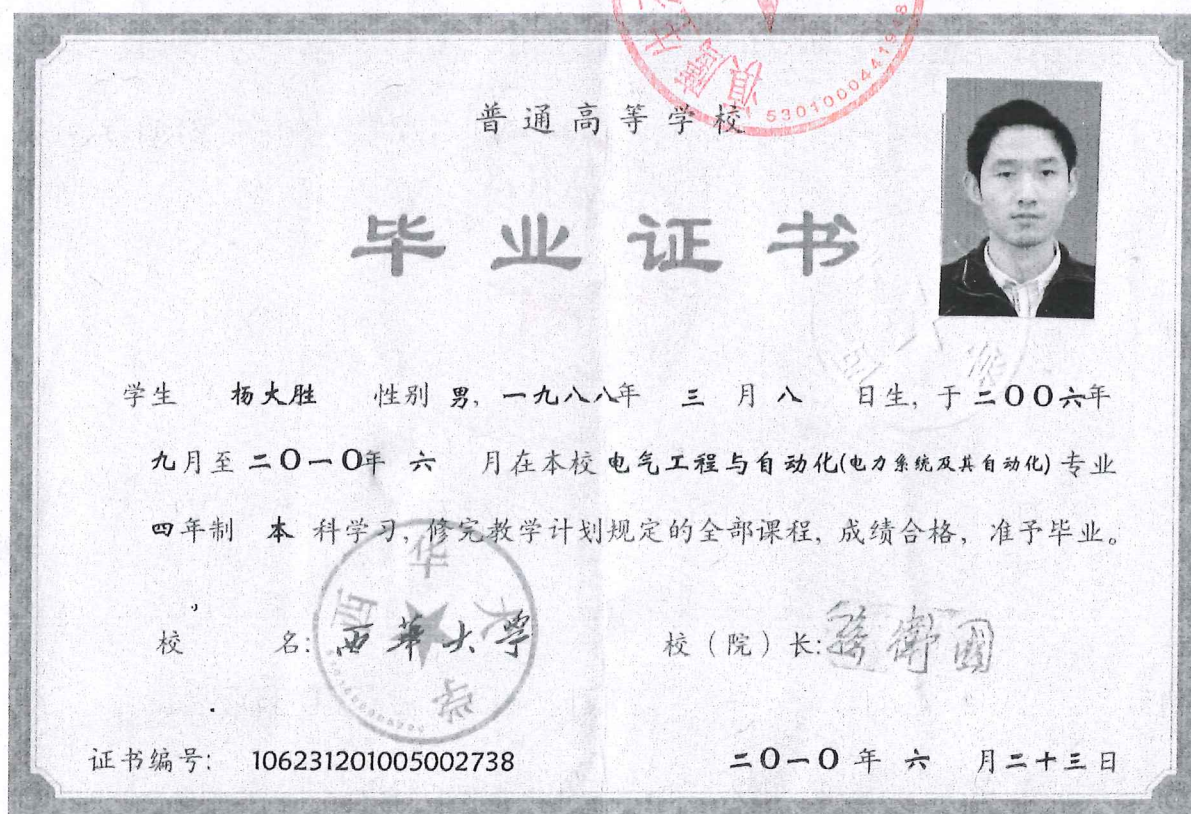 5301000441918
普通高等学校
毕业证书
学生 杨大胜 性别 男, 一九八八年 三 月 八 日生, 于 二〇〇六年
九月至 二〇一〇年 六 月在本校 电气工程与自动化(电力系统及其自动化) 专业
四年制 本 科学习, 修完教学计划规定的全部课程, 成绩合格, 准予毕业。
校 名: 西華大學
西华大学
校（院）长:
证书编号: 106231201005002738
二〇一〇 年 六 月二十三日